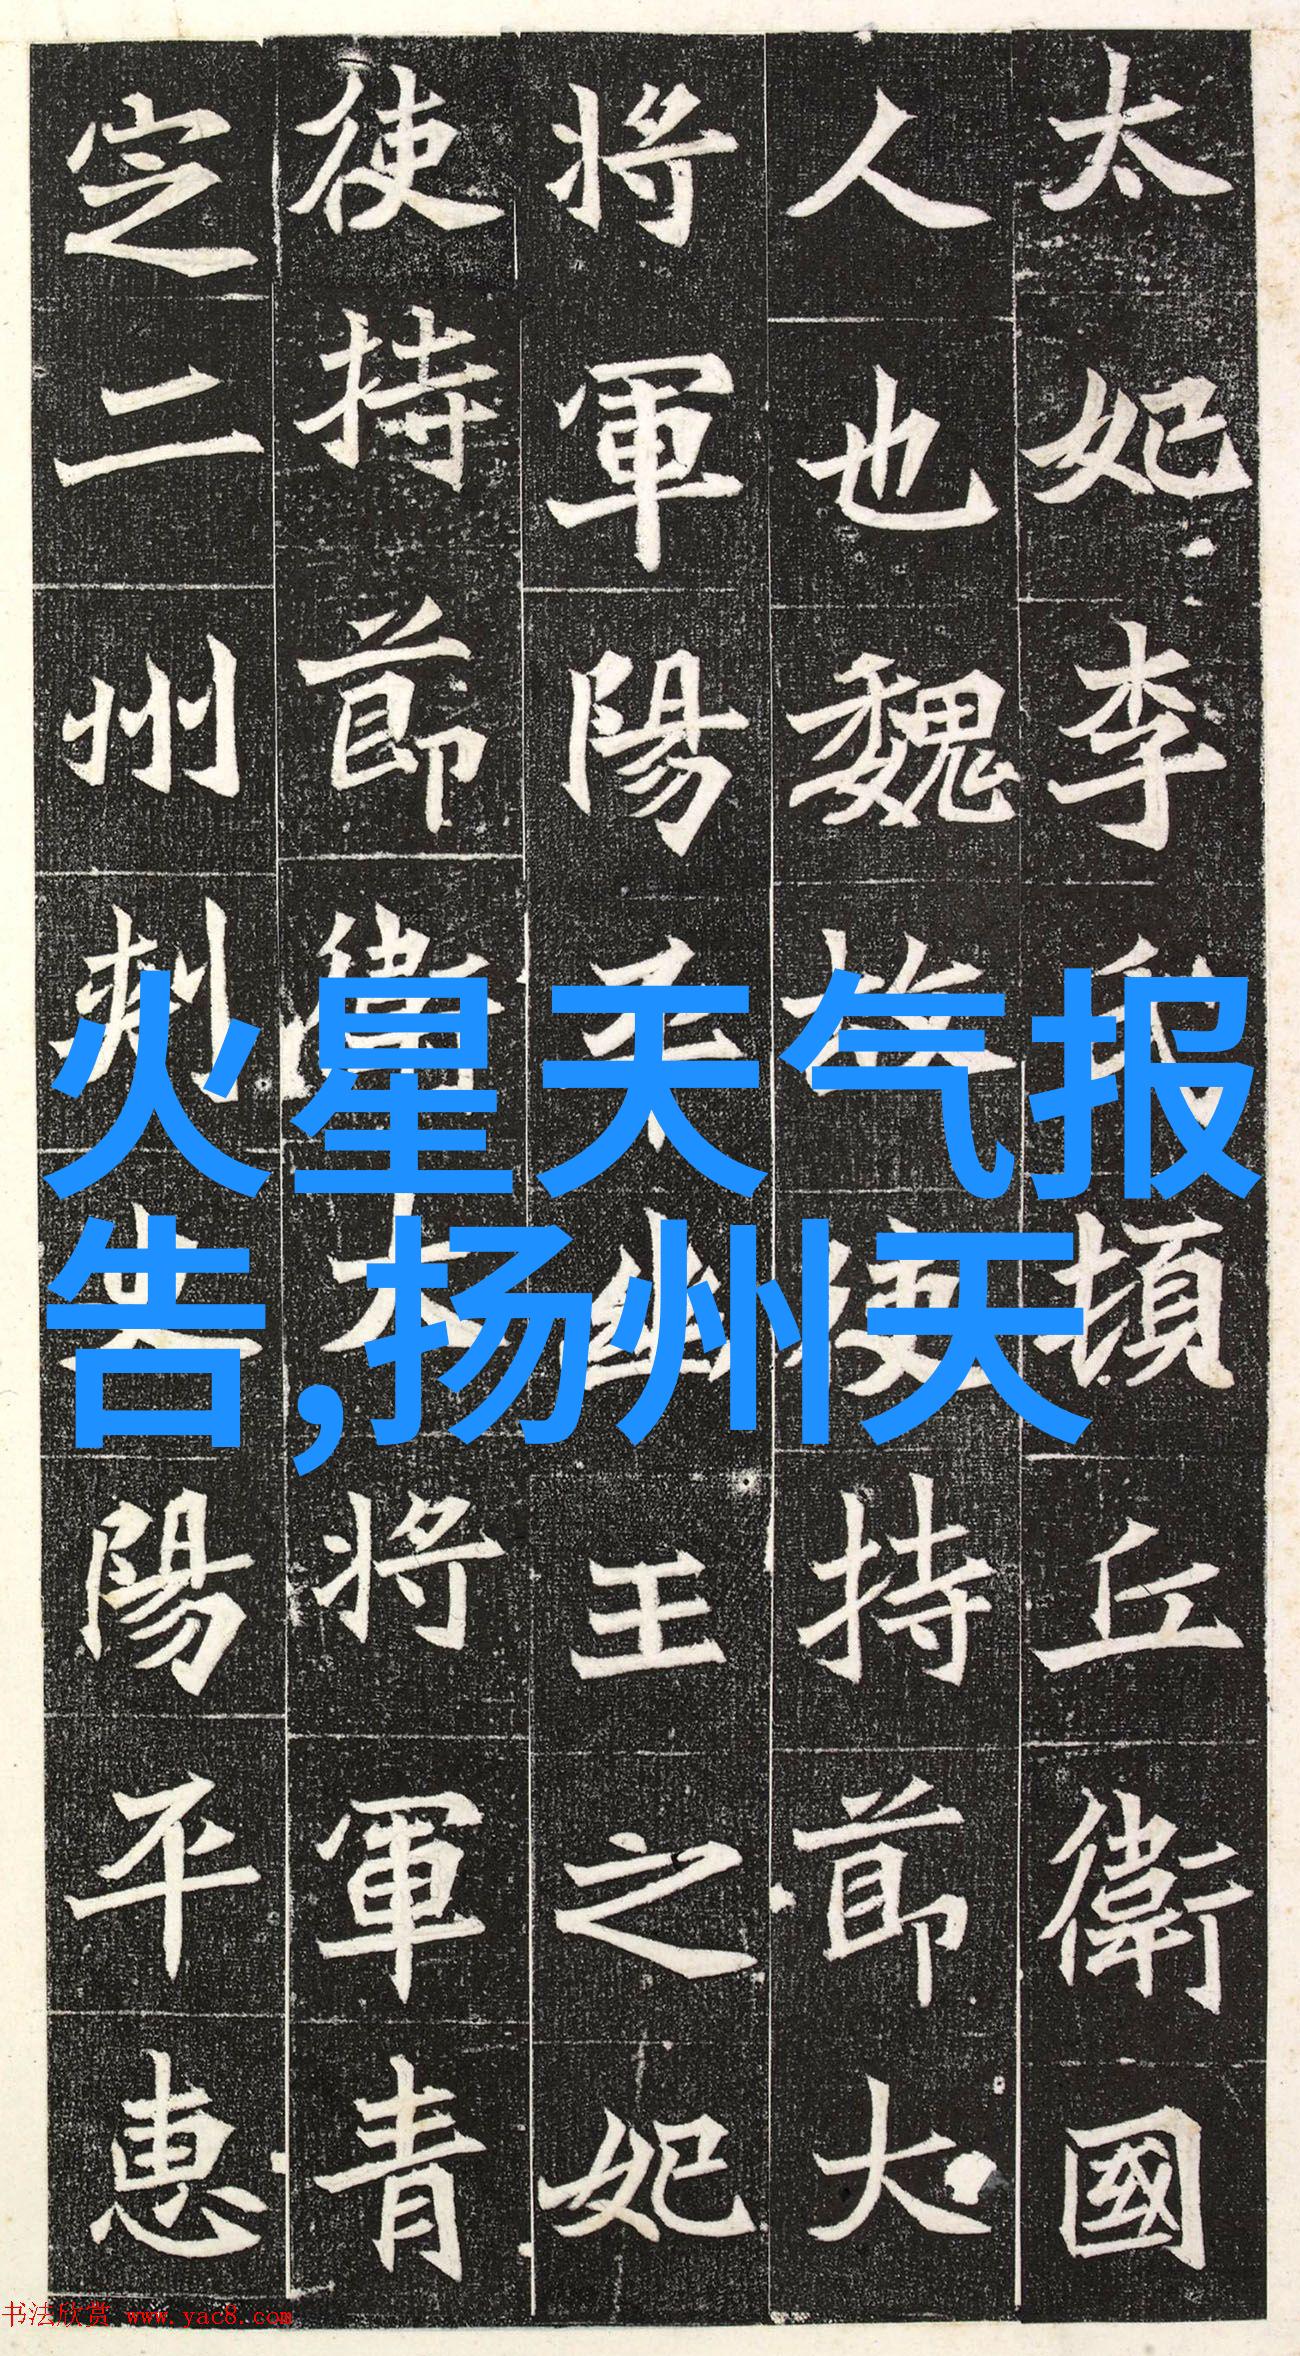 太妃李氏頓丘衛國
人也魏故使持節大
將軍陽平幽王之妃
使持節衛大將軍青
定二州刺史陽平惠
火星天气报
告,扬州天
书法欣赏 www.yac8.com